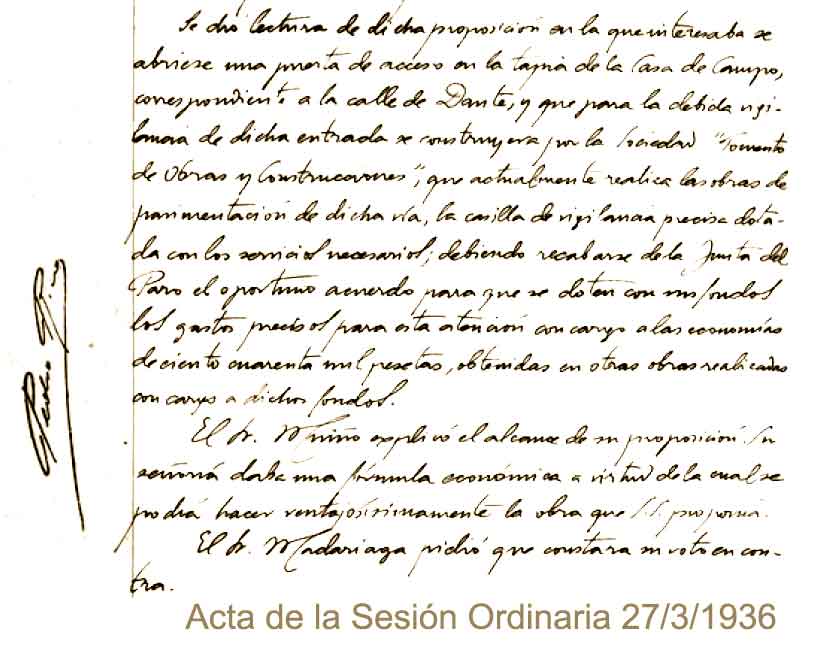 Se dió lectura de dicha proposición en la que interesaba se
abriese una puerta de acceso en la tapia de la Casa de Campo,
correspondiente a la calle de Dante, y que para la debida vigi-
lancia de dicha entrada se construyera por la Sociedad "Fomento
de Obras y Construcciones", que actualmente realiza las obras de
pavimentación de dicha vía, la casilla de vigilancia precisa dota-
da con los servicios necesarios; debiendo recabarse de la Junta del
Paro el oportuno acuerdo para que se doten con sus fondos
los gastos precisos para esta atención con cargo a las economías
de ciento cuarenta mil pesetas, obtenidas en otras obras realizadas
con cargo a dichos fondos.
El Sr. Muiño explicó el alcance de su proposición. Su
señoría daba una fórmula económica a virtud de la cual se
podrá hacer ventajosísimamente la obra que S.S. proponía.
El Sr. Madariaga pidió que constara su voto en con-
tra.
Pedro Rico
Acta de la Sesión Ordinaria 27/3/1936